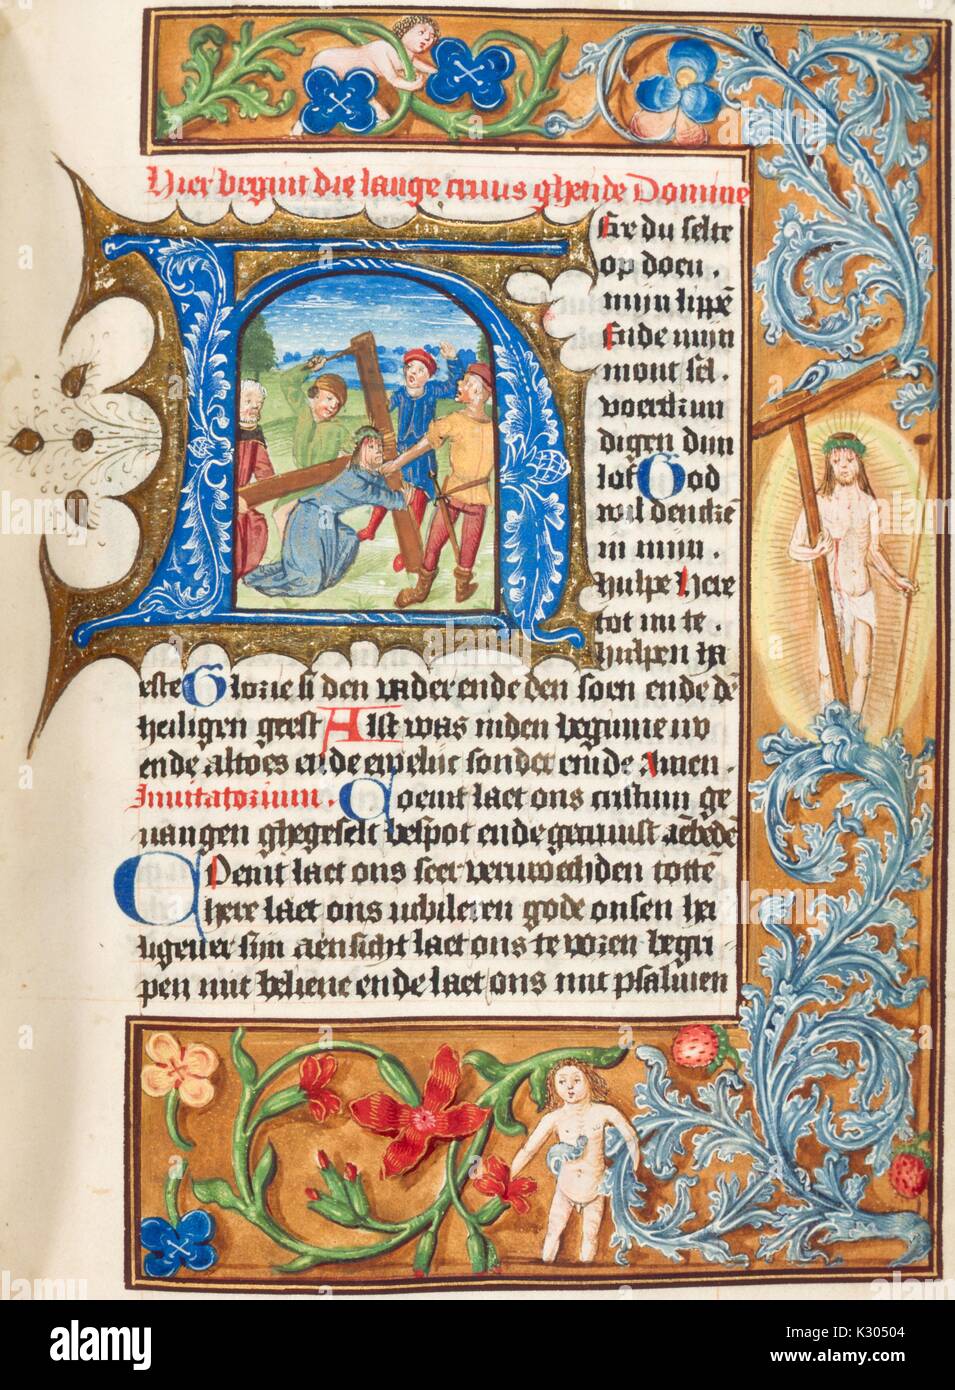 Hier begint die lange cruus ghetide Domine
Here du selte
op doen.
mijn lippē
Ende mijn
mont sel.
voertkun
digen dijn
lof God
wil denckē
in mijn.
hulpe Here
tot mi te.
hulpen ha
este Glorie si den vader ende den soen ende dē
heiligen geest Alst was inden beginne nv
ende altoes ende ewelijc sonder einde Amen.
Inuitatorium. Coemt laet ons cristum ge
uangen ghegeselt bespot ende gecruust aēbedē
Coemt laet ons seer verurechiden totten
here laet ons iubileren gode onsen hei
ligeuer sijn aensicht laet ons te voren begri
pen mit beliene ende laet ons mit psalmen
alamy
alamy
Image ID: K30504
www.alamy.com